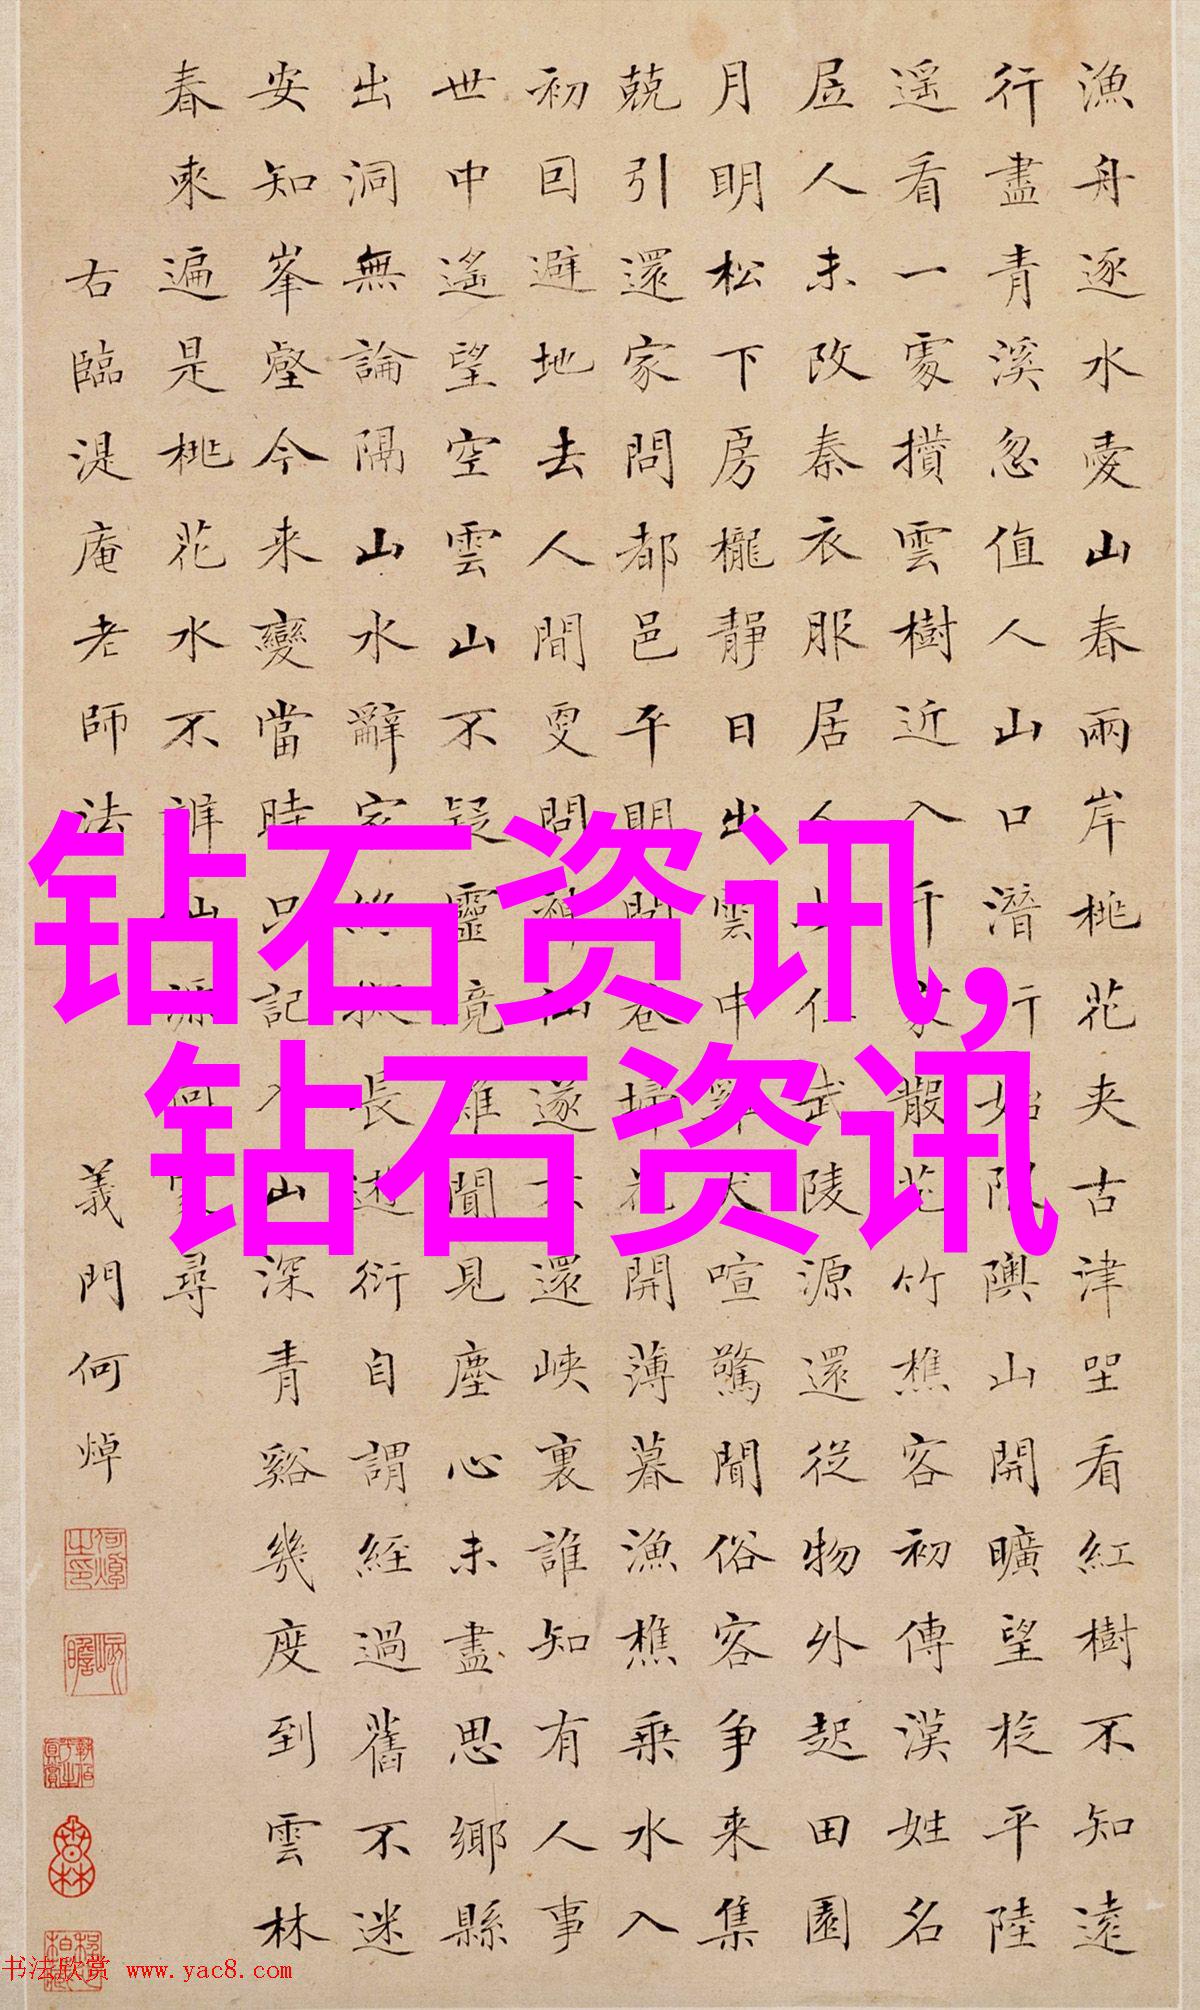 漁舟逐水愛山春兩岸桃花夾古津坐看紅樹不知遠
行盡青溪忽值人山口潛行始隈隩山開曠望旋平陸
遥看一處攢雲樹近入千家散花竹樵客初傳漢姓名
居人未改秦衣服居人共住武陵源還從物外起田園
月明松下房櫳靜日出雲中雞犬喧驚聞俗客争来集
競引還家問都邑平明閭巷掃花開薄暮漁樵乘水入
初因避地去人間更問神仙遂不還峽裏誰知有人事
世中遙望空雲山不疑靈境難聞見塵心未盡思鄉縣
出洞無論隔山水辭家終擬長游衍自謂經過舊不迷
安知峯壑今来變當時只記入山深青谿幾度到雲林
春來遍是桃花水不辨仙源何處尋
右臨湜庵老師法 義門何焯
钻石资讯,
钻石资讯
书法欣赏 www.yac8.com